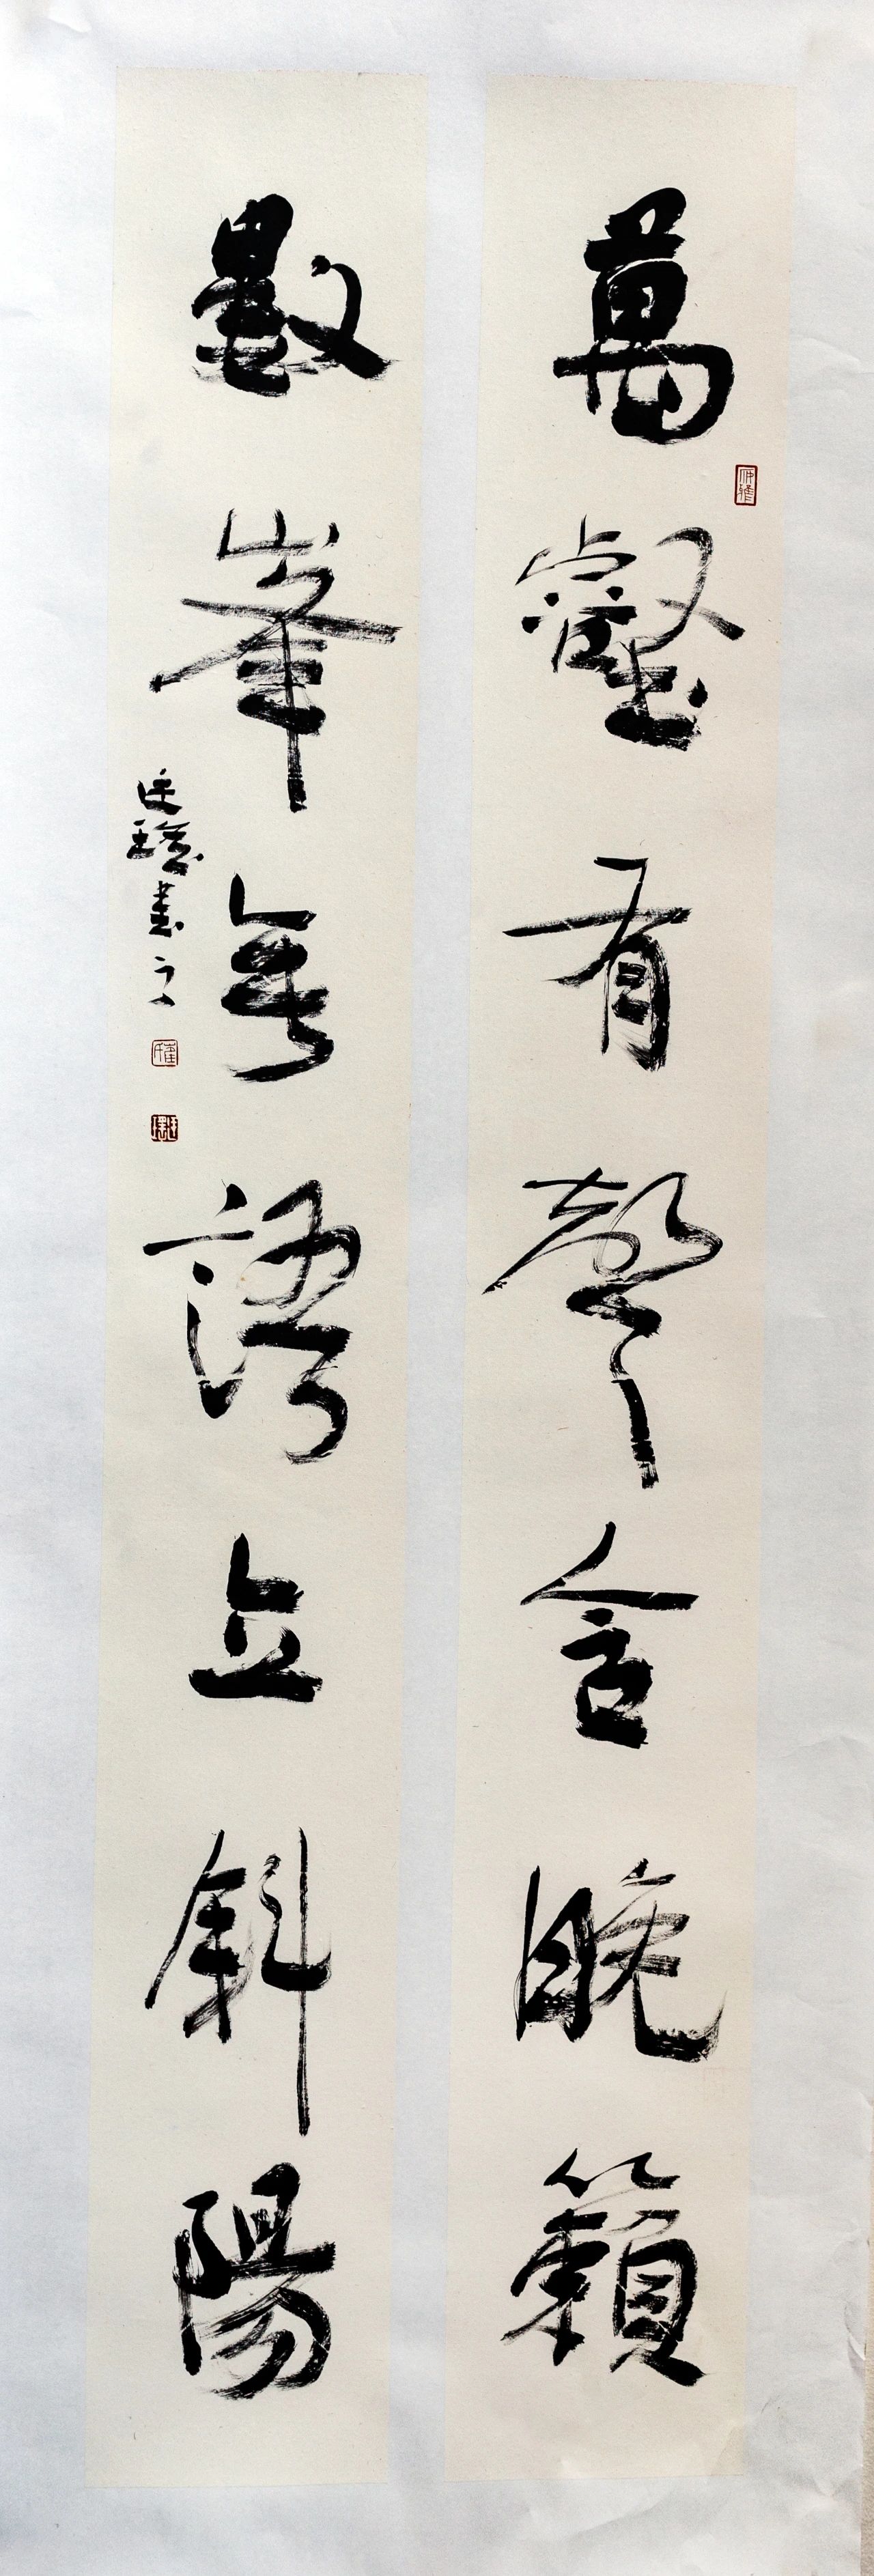 萬壑有聲含晚籟
數峯無語立斜陽
廷瑤書之